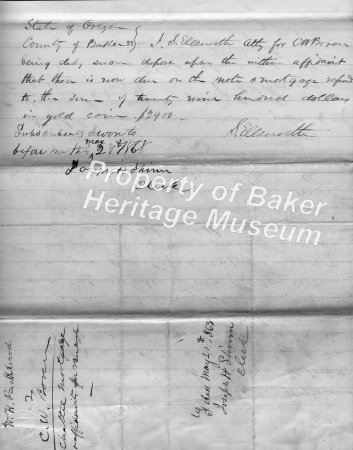 State of Oregon
County of Baker SS I, S. Ellsworth Atty for C W Boren
being dul, sworn depose upon the within affidavit
that there is now due on the note & mortgage refered
to, the sum of twenty nine hundred dollars
in gold coin $2900-
Subscribed & Sworn to
before me this May 2d 1868
S Ellsworth
Joseph H Shinn
Clerk
Property of Baker
Heritage Museum
W. H. Packwood
To
C. W. Boren
Chattel Mortgage
affidavit for renewal
Filed May 2d 1868
Joseph H Shinn
Clerk